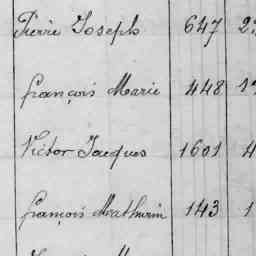 Pierre Joseph 647 2
François Marie 448 1
Victor Jacques 1601 4
François Mathurin 143 1